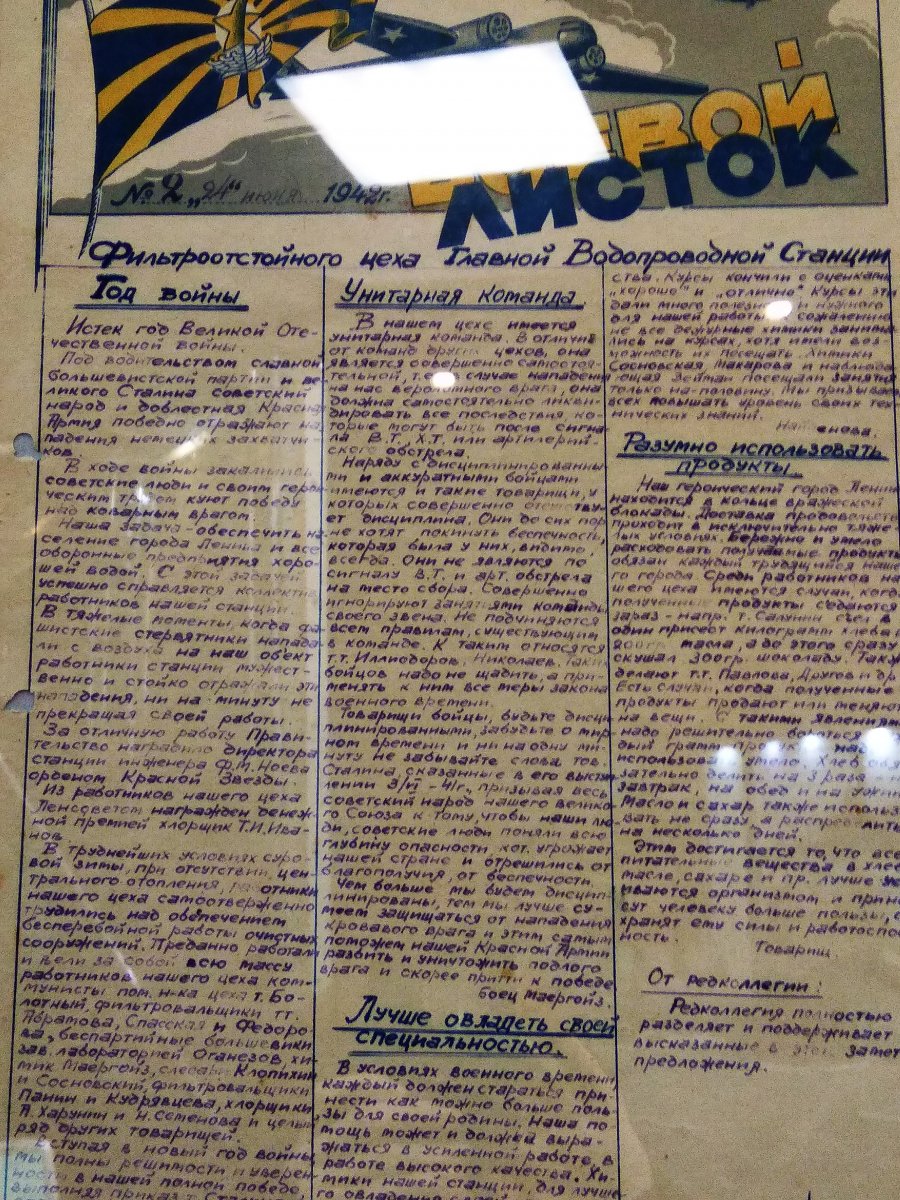 ЛИСТОК
№ 2 „24“ июня 1942г.
Фильтроотстойного цеха Главной Водопроводной Станции
Год войны
Истек год Великой Оте-
чественной войны.
Под водительством славной
большевистской партии и ве-
ликого Сталина советский
народ и доблестная Красная
Армия победно отражают на-
падения немецких захватчи-
ков.
В ходе войны закалились
советские люди и своим геро-
ческим трудом куют победу
над коварным врагом.
Наша задача - обеспечить на-
селение города Ленина и все
оборонные предприятия хоро-
шей водой. С этой задачей
успешно справляется коллектив
работников нашей станции.
В тяжелые моменты, когда фа-
шистские стервятники напада-
ли с воздуха на наш объект
работники станции мужест-
венно и стойко отражали эти
нападения, ни на минуту не
прекращая своей работы.
За отличную работу Прави-
тельство наградило директора
станции инженера Ф.М. Ноева
орденом Красной Звезды.
Из работников нашего цеха
Ленсоветом награжден денеж-
ной премией хлорщик Т.И. Ива-
нов.
В труднейших условиях суро-
вой зимы, при отсутствии цен-
трального отопления, работники
нашего цеха самоотверженно
трудились над обепечением
бесперебойной работы очистных
сооружений. Преданно работали
и вели за собой всю массу
работников нашего цеха ком-
мунисты пом. н-ка цеха т. Бо-
лотный, фильтровальщики тт.
Абратова, Спасская и Федоро-
ва, беспартийные большевики
зав. лабораторией Оганезов, хи-
мик Маергойз, слесари Клопихин
и Сосновский, фильтровальщики
Панин и Кудрявцева, хлорщики
А. Харунин и Н. Семенова и целый
ряд других товарищей.
Вступая в новый год войны
мы полны решимости и уверен-
ности в нашей полной победе,
выполняя приказ т. Сталина
Унитарная команда
В нашем цехе имеется
унитарная команда. В отличие
от команд других цехов, она
является совершенно самостоя-
тельной, т.е. в случае нападения
на нас вероломного врага, она
должна самостоятельно ликви-
дировать все последствия, ко-
торые могут быть после сигна-
ла В.Т., Х.Т. или артиллерий-
ского обстрела.
Наряду с дисциплинированны-
ми и аккуратными бойцами
имеются и такие товарищи, у
которых совершенно отсутству-
ет дисциплина. Они до сих пор
не хотят покинуть беспечность,
которая была у них, видимо,
всегда. Они не являются по
сигналу В.Т. и арт. обстрела
на место сбора. Совершенно
игнорируют занятиями команды
своего звена. Не подчиняются
всем правилам, существующим
в команде. К таким относятся
т.т. Иллиодоров, Николаев. Таких
бойцов надо не щадить, а при-
менять к ним все меры закона
военного времени.
Товарищи бойцы, будьте дисци-
плинированными, забудьте о мир-
ном времени и ни на одну ми-
нуту не забывайте слова тов.
Сталина, сказанные в его высту-
лении 3/VI - 41г., призывая весь
советский народ нашего велико-
го Союза к тому, чтобы наши лю-
ди, советские люди поняли всю
глубину опасности кот. угрожает
нашей стране и отрешились от
благополучия, от беспечности.
Чем больше мы будем дисцип-
линированы, тем мы лучше су-
меем защищаться от нападения
кровавого врага и этим самым
поможем нашей Красной Армии
разбить и уничтожить подлого
врага и скорее притти к победе
Боец Маергойз.
Лучше овладеть своей
специальностью.
В условиях военного времени,
каждый должен стараться при-
нести как можно больше поль-
зы для своей родины. Наша по-
мощь может и должна выра-
жаться в усиленной работе, в
работе высокого качества. Хи-
мики нашей станции, для лучше-
го овладения
ства. Курсы кончили с оценками
„хорошо“ и „отлично“ Курсы эти
дали много полезного и нужного
для нашей работы. К сожалению
не все дежурные химики занима-
лись на курсах, хотя имели воз-
можность их посещать. Химики
Сосновская Макарова и наблюда-
ющая Зейман посещали занятия
только на половину. Мы призываем
всех повышать уровень своих тех-
нических знаний.
Разумно использовать
продукты.
Наш героический город Ленин
находится в кольце вражеской
блокады. Доставка продовольств
проходит в исключительно тяже-
лых условиях. Бережно и умело
расходовать полученные продукты
обязан каждый трудящийся наше
го города. Среди работников на
шего цеха имеются случаи, когда
полученные продукты съедаются
зараз - напр. т. Салунин съел в
один присест килограмм хлеба и
200гр. масла, а до этого сразу
скушал 300гр. шоколаду. Также
делают т.т. Павлова, Другов и др
Есть случаи, когда полученные
продукты продают или меняют
на вещи. С такими явлениями
надо решительно бороться.
дый грамм над
использовать умело. Хлеб обя
зательно делить на 3 раза - на
завтрак, на обед и на ужин
Масло и сахар также использо
вать не сразу, а распределить
на несколько дней.
Этим достигается то, что все
питательные вещества в хлебе
масле, сахаре и пр. лучше ус
иваются организмом и прине
сут человеку больше пользы, со
хранят ему силы и работоспо
ность.
Товарищ.
От редколлегии:
Редколлегия полностью
разделяет и поддерживает
высказанные в этой замет
предложения.